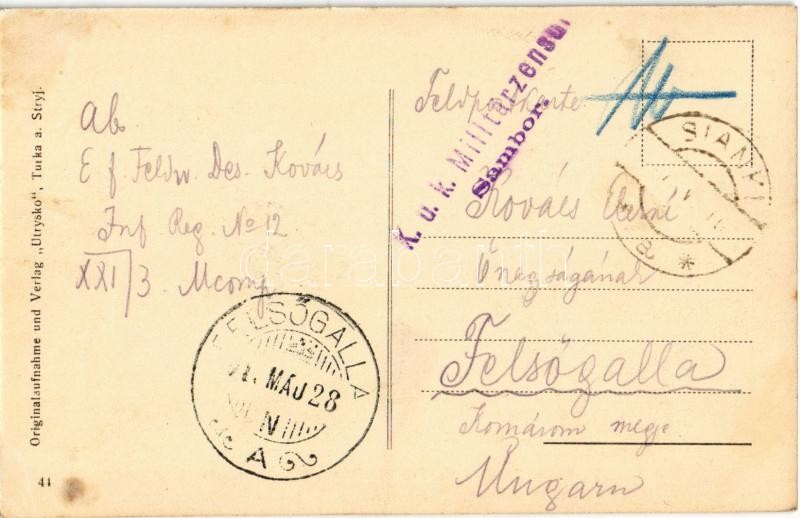 Originalaufnahme und Verlag „Utrysko", Turka a. Stryj.
44
ab.
E f. Feldw. Des. Kovács
Inf Reg. No 12
XXI/3. Mcomp
FELSŐGALLA
MÁJ 28
N
A
K. u. k. Militärzensur
Sambor.
SIANKI
a
Feldpostkarte
Kovács
Őnagságának
Felsőgalla
Komárom megye
Ungarn
darabanth